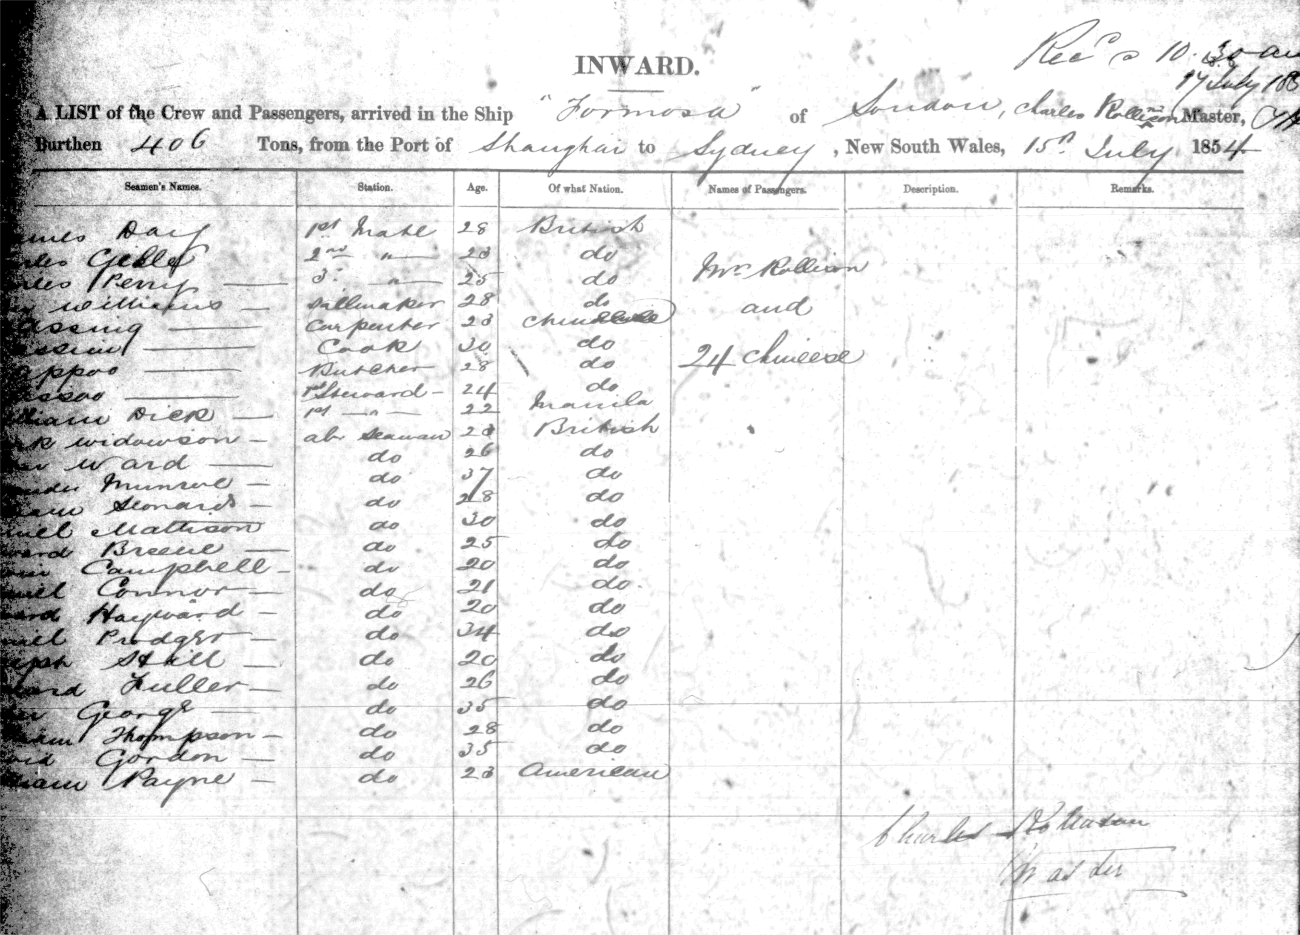 INWARD.
Recd 10.30 am
17 July 185
A LIST of the Crew and Passengers, arrived in the Ship "Formosa" of London, Charles Rollison Master,
Burthen 406 Tons, from the Port of Shanghai to Sydney, New South Wales, 15th July 1854
Seamen's Names. Station. Age. Of what Nation. Names of Passengers. Description. Remarks.
Day 1st Mate 28 British
2nd " 23 do
Perry 3d " 25 do Mrs Rollison
Williams Sailmaker 28 do and
Carpenter 23 Chinese
Cook 30 do 24 Chineese
Butcher 28 do
Steward 24 do
Dick 1st " 22 Manila
Widowson ab Seaman 23 British
Ward do 26 do
Munroe do 37 do
Leonard do 28 do
Mattison do 30 do
Breene do 25 do
Campbell do 20 do
Connor do 21 do
Hayward do 20 do
Prodger do 34 do
Still do 20 do
Fuller do 26 do
George do 35 do
Thompson do 28 do
Gordon do 35 do
Payne do 23 American
Charles Rollison
Master